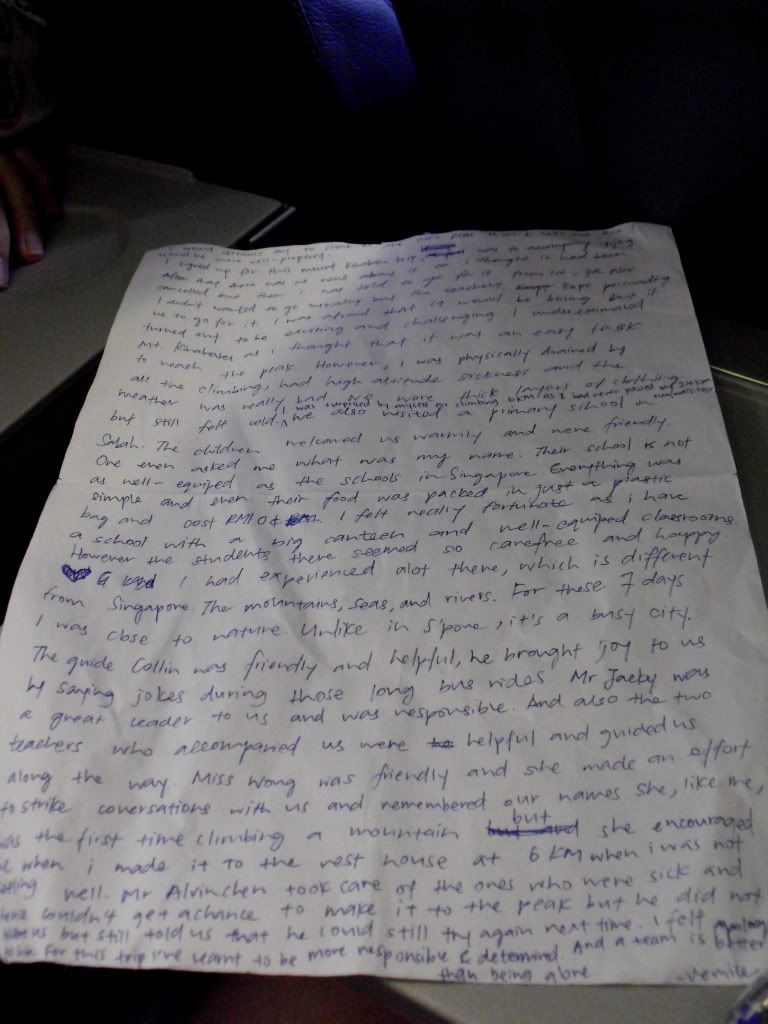 would be more well-prepared.
I signed up for this mount Kinabalu trip
After that there was no news about it so i thought it had been
cancelled but then i was told to go for it
I didn't wanted to go initially but the teachers kept persuading
us to go for it. I was afraid that it would be boring but it
turned out to be exciting and challenging. I underestimated
Mt. Kinabalu as i thought that it was an easy task
to reach the peak. However, i was physically drained by
all the climbing, had high altitude sickness and the
weather was really bad. We wore thick layers of clothing
I was surprised by myself for climbing 6km as I had never passed my 2.4km
but still felt cold. We also visited a primary school in
Sabah. The children welcomed us warmly and were friendly.
One even asked me what was my name. Their school is not
as well-equiped as the schools in Singapore. Everything was
simple and even their food was packed in just a plastic
bag and cost RM1 I felt really fortunate as i have
a school with a big canteen and well-equiped classrooms.
However the students there seemed so carefree and happy.
I had experienced alot there, which is different
from Singapore. The mountains, seas, and rivers. For these 7 days
I was close to nature. Unlike in S'pore, it's a busy city.
The guide Collin was friendly and helpful, he brought joy to us
by saying jokes during those long bus rides. Mr Jacky was
a great leader to us and was responsible. And also the two
teachers who accompanied us were helpful and guided us
along the way. Miss Wong was friendly and she made an effort
to strike conversations with us and remembered our names. She, like me,
was the first time climbing a mountain but she encouraged
me when i made it to the rest house at 6 KM when i was not
feeling well. Mr Alvin chen took care of the ones who were sick and
couldn't get a chance to make it to the peak but he did not
but still told us that he could still try again next time. I felt
For this trip I've learnt to be more responsible & determined. And a team is better
than being alone